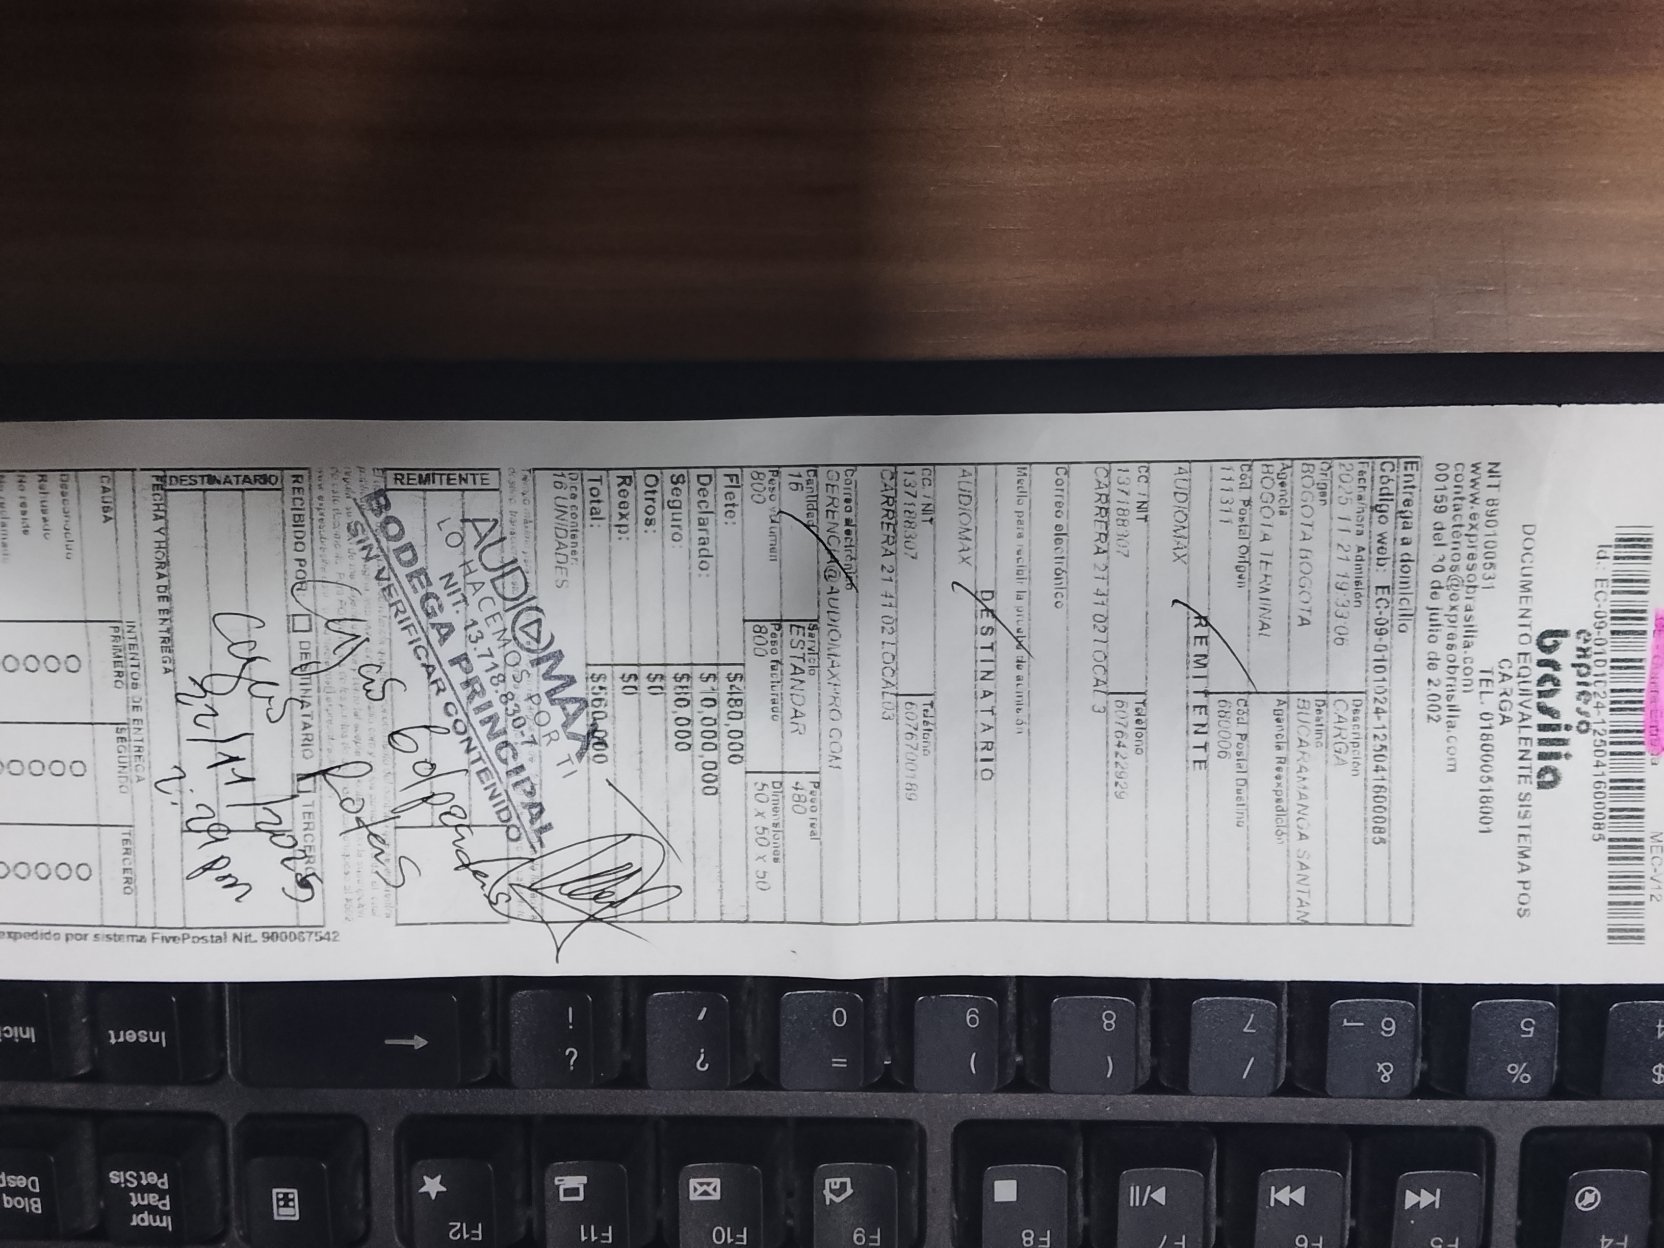 MEC-V12
Id.: EC-09-0101024-125041600085
expreso
brasilia
CARGA
DOCUMENTO EQUIVALENTE SISTEMA POS
NIT 890100531 TEL. 018000518001
www.expresobrasilia.com
contactenos@expresobrasilia.com
00159 del 30 de julio de 2.002
Entrega a domicilio
Código web: EC-09-0101024-125041600085
Fecha/hora Admisión Descripción
2025 11 21 19:33:06 CARGA
Origen Destino
BOGOTA BOGOTA BUCARAMANGA SANTAN
Agencia Agencia Reexpedición
BOGOTA TERMINAL
Cód. Postal Origen Cód. Postal Destino
111311 680006
REMITENTE
AUDIOMAX
CC / NIT Teléfono
137188307 6076422929
CARRERA 21 41 02 LOCAL 3
Correo electrónico
Medio para recibir la prueba de admisión
DESTINATARIO
AUDIOMAX
CC / NIT Teléfono
137188307 6076700189
CARRERA 21 41 02 LOCAL 03
Correo electrónico
GERENCIA@AUDIOMAXPRO.COM
Cantidad Servicio Peso real
16 ESTANDAR 480
Peso volumen Peso facturado Dimensiones
800 800 50 x 50 x 50
Flete: $480,000
Declarado: $10,000,000
Seguro: $80,000
Otros: $0
Reexp: $0
Total: $560,000
Dice contener:
16 UNIDADES
AUDIOMAX
LO HACEMOS POR TI
NIT. 13.718.830-7
BODEGA PRINCIPAL
SIN VERIFICAR CONTENIDO
REMITENTE
RECIBIDO POR DESTINATARIO TERCERO
DESTINATARIO
22/11/2025
2:29 pm
FECHA Y HORA DE ENTREGA
INTENTOS DE ENTREGA
CAUSA PRIMERO SEGUNDO TERCERO
Desconocido
Rehusado
No reside
expedido por sistema FivePostal Nit. 900067542
Insert
Inici
! ?
0 =
9 )
8 (
7 /
6 &
5 %
4 $
Bloq
Desp
Impr
Pant
PetSis
F12
F11
F10
F9
F8
F7
F6
F5
F4